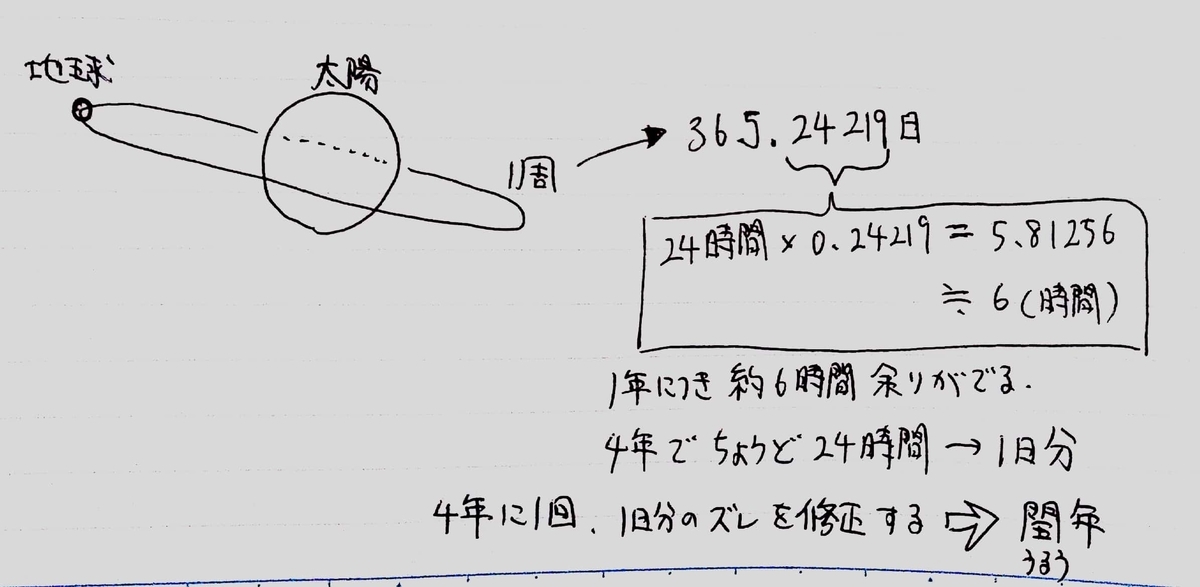 地球
太陽
1周
365.24219日
24時間×0.24219=5.81256
≒6(時間)
1年につき約6時間余りがでる.
4年でちょうど24時間→1日分
4年に1回、1日分のズレを修正する⇨閏年
うるう